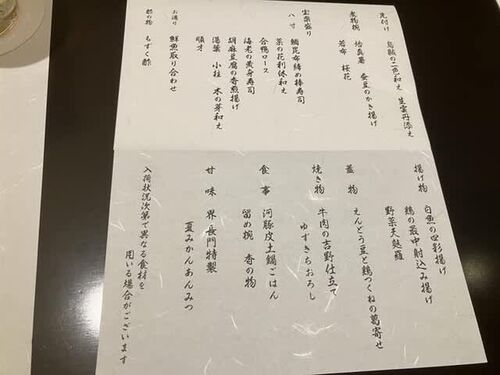 先付け 烏賊の二色和え 生雲丹添え
煮物椀 蛤真薯 蚕豆のかき揚げ
若布 桜花
宝楽盛り
八寸 鯛昆布締め棒寿司
菜の花利休和え
合鴨ロース
海老の黄身寿司
胡麻豆腐の香煎揚げ
湯葉 小柱 木の芽和え
順才
お造り 鮮魚取り合わせ
酢の物 もずく酢
揚げ物 白魚の四彩揚げ
鶏の最中射込み揚げ
野菜天麩羅
蓋物 えんどう豆と鶏つくねの葛寄せ
焼き物 牛肉の吉野仕立て
ゆずきちおろし
食事 河豚皮土鍋ごはん
留め椀 香の物
甘味 界 長門特製
夏みかんあんみつ
入荷状況次第で異なる食材を
用いる場合がございます